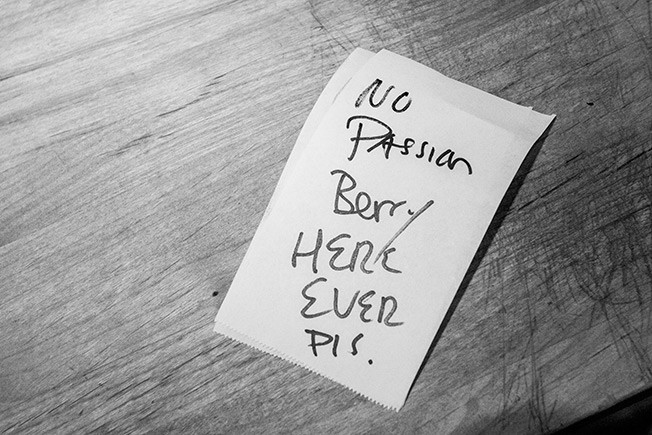 NO
PASSION
Berry
HERE
EVER
PLS.